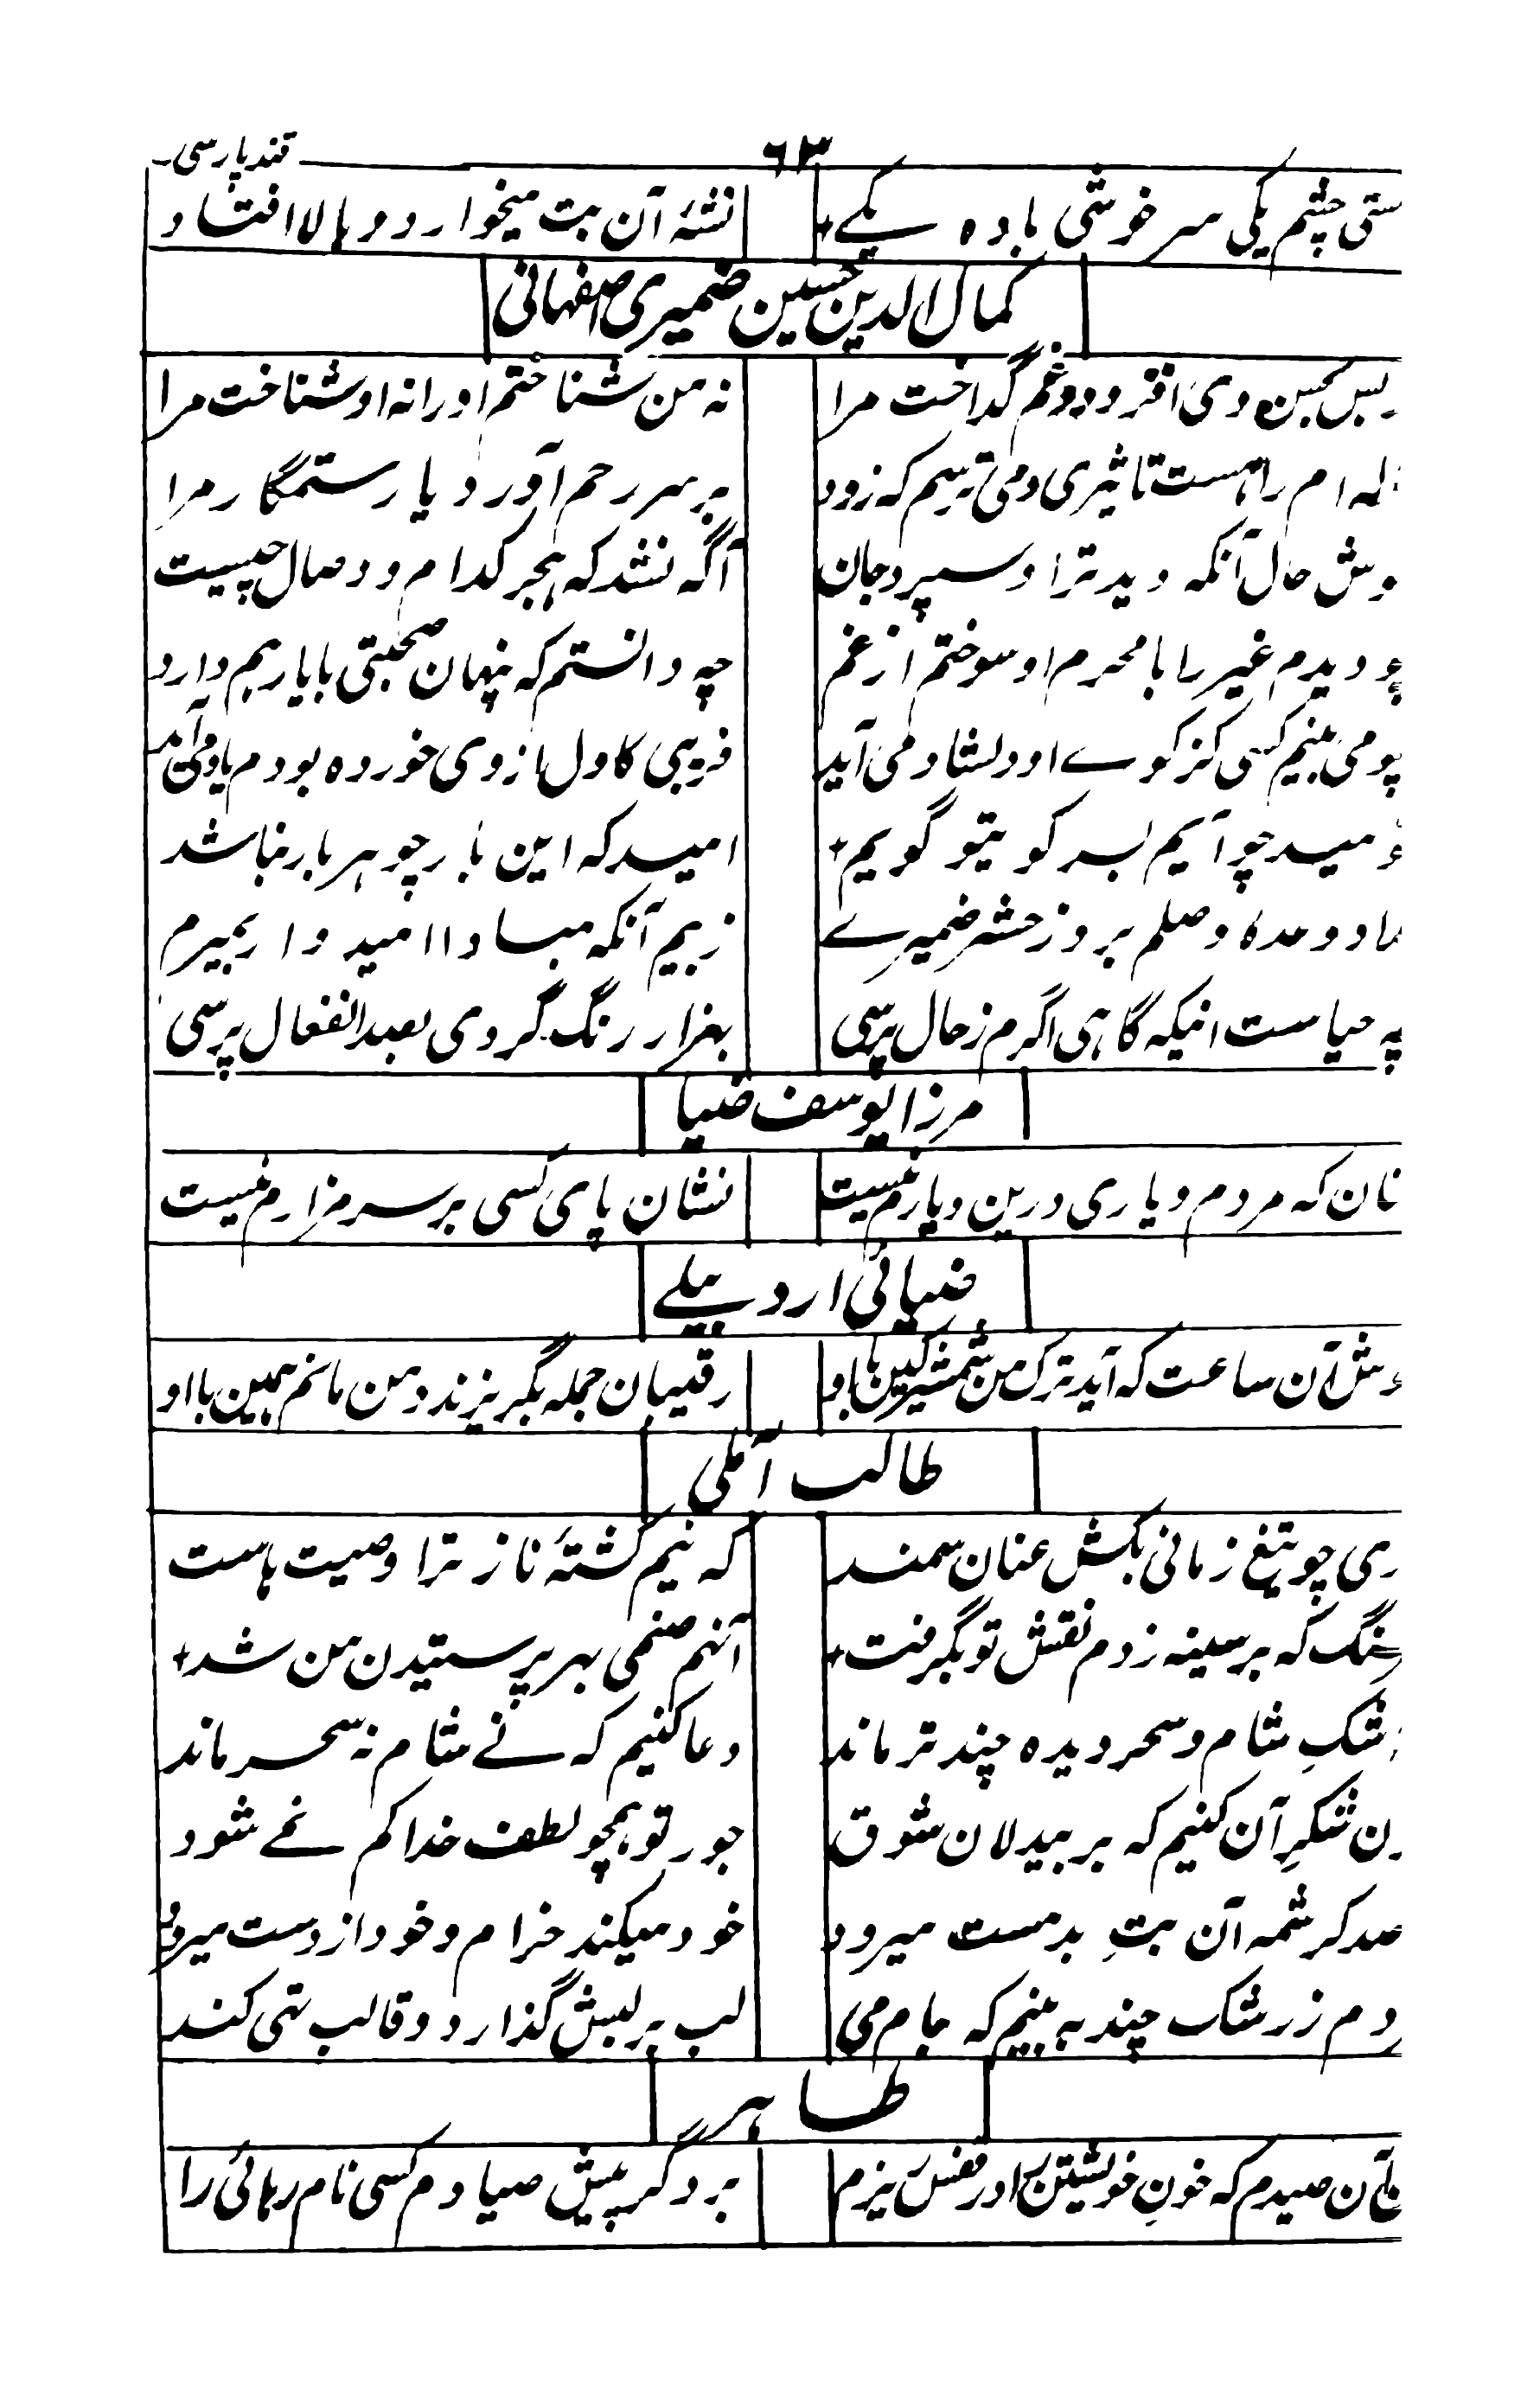 قند پارسی ۶۳
ستی چشم یکی سرخوشی باده یکے نشۂ آن بت میخوار دو بالا افتاد
کمال الدین حسین ضمیری اصفهانی
بس حسن وی افزود و غم گداخت مرا نه من شناختم او را نه او شناخت مرا
له ام را هست تاثیری و می ترسم که زود بر سر رحم آورد یار ستمگار مرا
وش حال آنکه دید ترا و سپرد جان آگه نشد که هجر کدام و وصال چیست
و دیدم غیر را با محرم او سوختم از غم چه دانستم که پنهان صحبتی با یار هم دارد
و می بینم کسی کز کوے او دلشاد می آید فریبی کاول از وی خورده بودم یاد می آید
مید چو آیم بسر کویتو گویم امید که این بار چو هر بار نباشد
داد وعده وصلم بروز حشر ضمیرے ز بیم آنکه مبادا امیدوار بمیرم
چه حیاست اینکه گاهی اگرم ز حال پرسی بهزار رنگ گردی بصد انفعال پرسی
مرزا یوسف ضیا
نان که مردم و یاری درین دیارم نیست نشان پای کسی بر سر مزارم نیست
ضیائی اردبیلے
وش آن ساعت که آید ترک من شمشیر کین با او رقیبان جمله بگریزند و من مانم همین با او
طالب آملی
ری چو تیغ زمانی بکش عنان سمند که نیم کشتۂ ناز ترا وصیت هاست
سنگ که بر سینه زدم نقش تو بگرفت آنهم صنمی بهر پرستیدن من شد
شکِ شام و سحر دیده چند تر ماند دعا کنیم که نے شام نه سحر ماند
ن شکرِ آن کنیم که بر بیدلان شوق جور تو همچو لطف خدا کم نمے شود
صد کرشمه آن بتِ بدمست میرود خود میکند خرام و خود از دست میرود
دم ز رشک چند به بینم که جام می لب بر لبش گذارد و قالب تهی کند
طاهر
آن صیدم که خونِ خویشتن را در قفس ریزم برد گر پیش صیادم کسی نام رهائی را